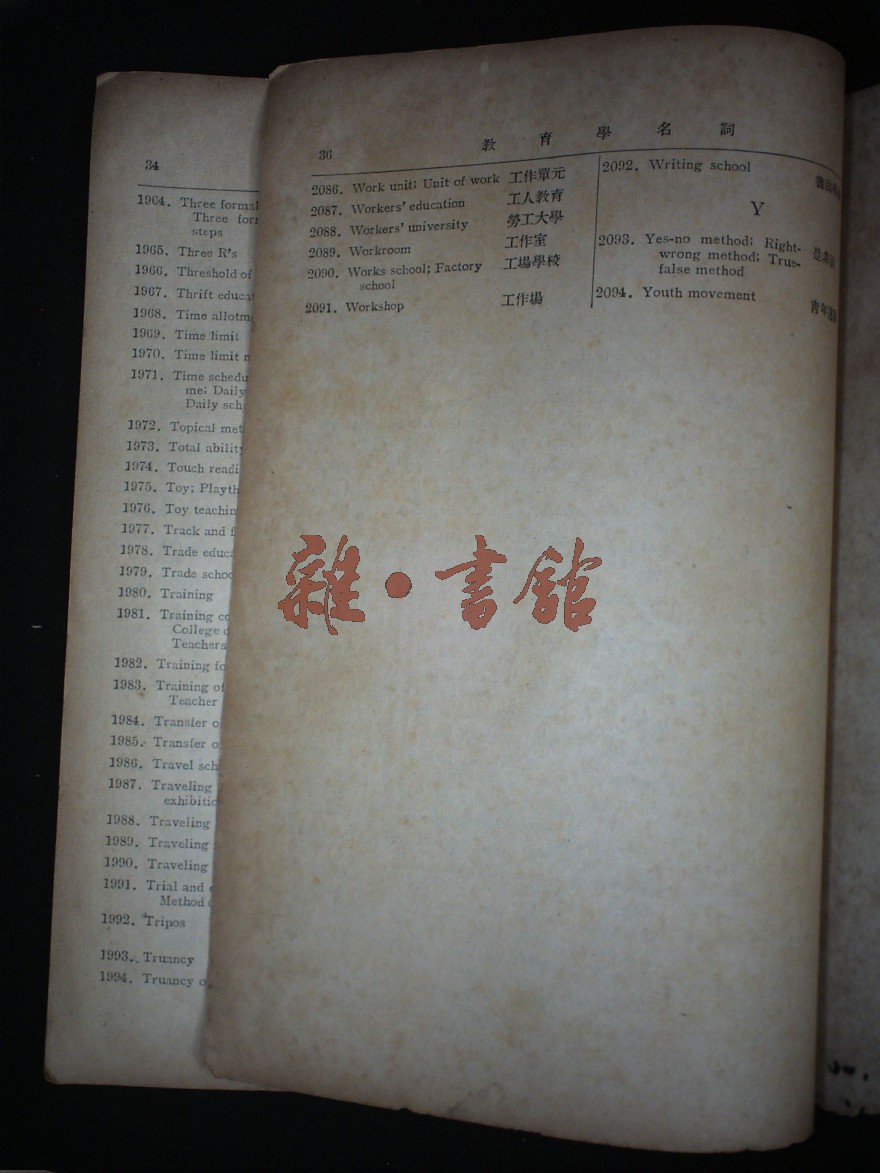 34
1964. Three formal
Three
steps
1965. Three R's
1966. Threshold of
1967. Thrift
1968. Time
1969. Time limit
1970. Time limit
1971. Time
me; Daily
Daily
1972. Topical
1973. Total ability
1974. Touch
1975. Toy;
1976. Toy
1977. Track and
1978. Trade
1979. Trade
1980. Training
1981. Training
College
Teachers
1982. Training
1983. Training of
Teacher
1984. Transfer
1985. Transfer
1986. Travel
1987. Traveling
1988. Traveling
1989. Traveling
1990. Traveling
1991. Trial and
Method
1992. Tripos
1993. Truancy
1994. Truancy
36 教育學名詞
2086. Work unit; Unit of work 工作單元
2087. Workers' education 工人教育
2088. Workers' university 勞工大學
2089. Workroom 工作室
2090. Works school; Factory 工場學校
school
2091. Workshop 工作場
2092. Writing school
Y
2093. Yes-no method; Right-
wrong method; True-
false method
2094. Youth movement
雜·書館